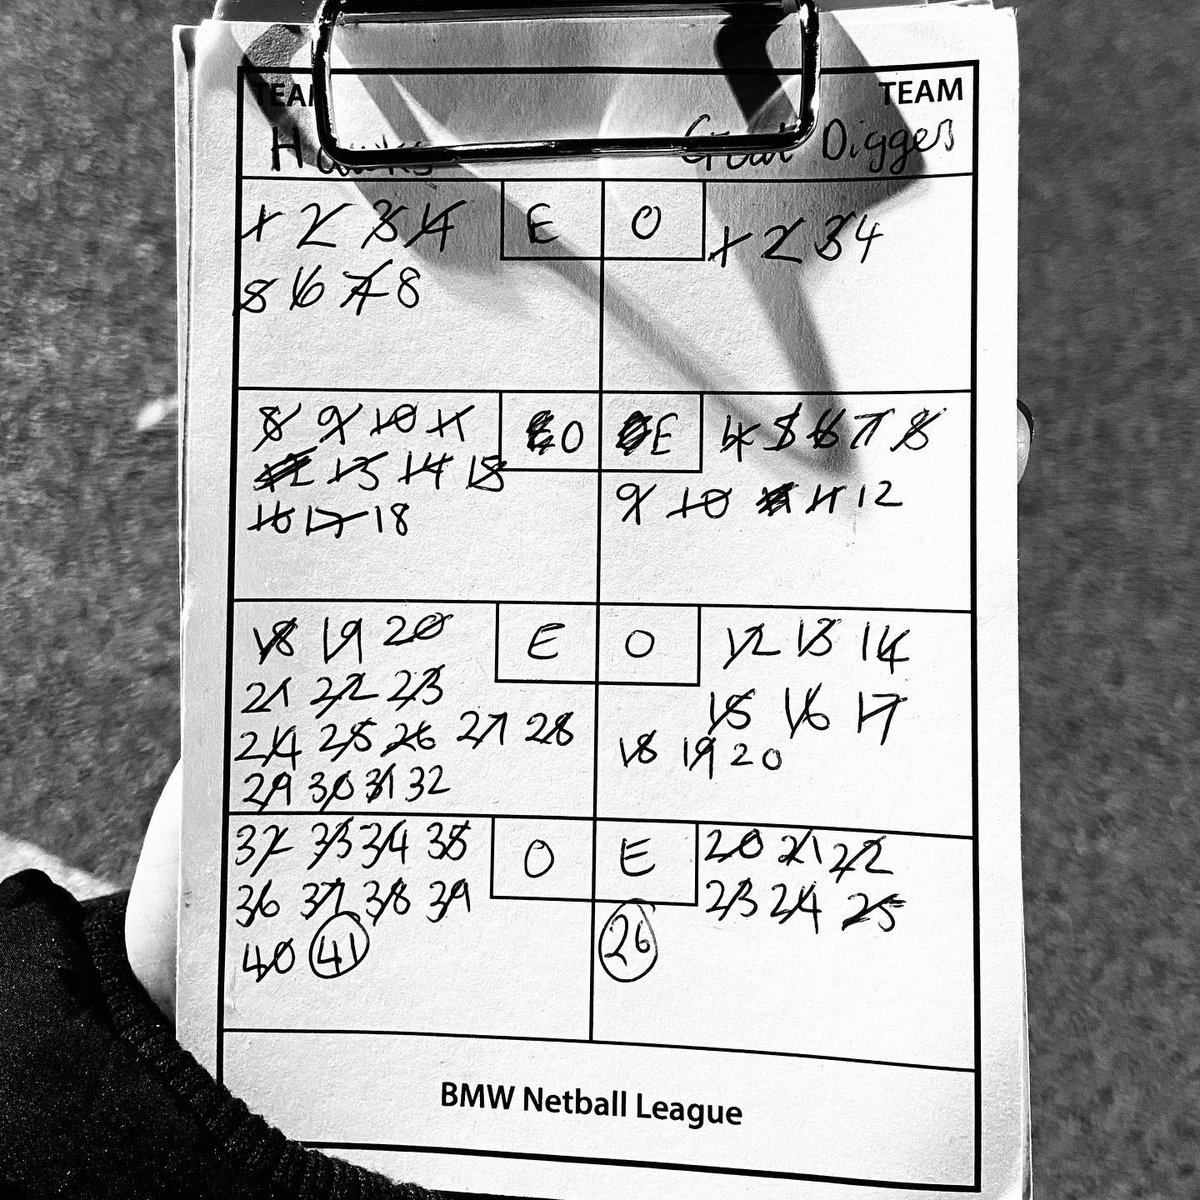 TEAM TEAM
Hawks Great Diggers
1 2 3 4 E O 1 2 3 4
5 6 7 8
8 9 10 11 O E 4 5 6 7 8
12 13 14 15 9 10 11 12
16 17 18
18 19 20 E O 12 13 14
21 22 23 15 16 17
24 25 26 27 28 18 19 20
29 30 31 32
32 33 34 35 O E 20 21 22
36 37 38 39 23 24 25
40 41 26
BMW Netball League